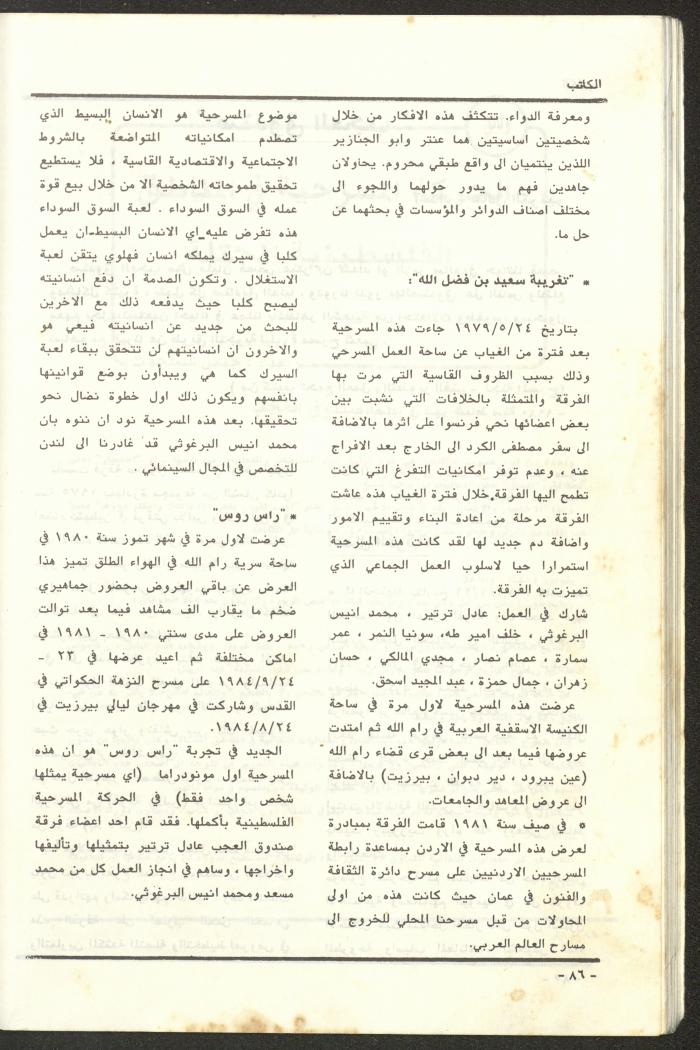 الكاتب
ومعرفة الدواء. تتكثف هذه الافكار من خلال
شخصيتين اساسيتين هما عنتر وابو الجنازير
اللذين ينتميان الى واقع طبقي محروم. يحاولان
جاهدين فهم ما يدور حولهما واللجوء الى
مختلف اصناف الدوائر والمؤسسات في بحثهما عن
حل ما.
* "تغريبة سعيد بن فضل الله":
بتاريخ ١٩٧٩/٥/٢٤ جاءت هذه المسرحية
بعد فترة من الغياب عن ساحة العمل المسرحي
وذلك بسبب الظروف القاسية التي مرت بها
الفرقة والمتمثلة بالخلافات التي نشبت بين
بعض اعضائها نحي فرنسوا على اثرها بالاضافة
الى سفر مصطفى الكرد الى الخارج بعد الافراج
عنه ، وعدم توفر امكانيات التفرغ التي كانت
تطمح اليها الفرقة.خلال فترة الغياب هذه عاشت
الفرقة مرحلة من اعادة البناء وتقييم الامور
واضافة دم جديد لها لقد كانت هذه المسرحية
استمرارا حيا لاسلوب العمل الجماعي الذي
تميزت به الفرقة.
شارك في العمل: عادل ترتير ، محمد انيس
البرغوثي ، خلف امير طه، سونيا النمر ، عمر
سمارة ، عصام نصار ، مجدي المالكي ، حسان
زهران ، جمال حمزة ، عبد المجيد اسحق.
عرضت هذه المسرحية لاول مرة في ساحة
الكنيسة الاسقفية العربية في رام الله ثم امتدت
عروضها فيما بعد الى بعض قرى قضاء رام الله
(عين يبرود ، دير دبوان ، بيرزيت) بالاضافة
الى عروض المعاهد والجامعات.
* في صيف سنة ١٩٨١ قامت الفرقة بمبادرة
لعرض هذه المسرحية في الاردن بمساعدة رابطة
المسرحيين الاردنيين على مسرح دائرة الثقافة
والفنون في عمان حيث كانت هذه من اولى
المحاولات من قبل مسرحنا المحلي للخروج الى
مسارح العالم العربي.
موضوع المسرحية هو الانسان البسيط الذي
تصطدم امكانياته المتواضعة بالشروط
الاجتماعية والاقتصادية القاسية ، فلا يستطيع
تحقيق طموحاته الشخصية الا من خلال بيع قوة
عمله في السوق السوداء . لعبة السوق السوداء
هذه تفرض عليه-اي الانسان البسيط-ان يعمل
كلبا في سيرك يملكه انسان فهلوي يتقن لعبة
الاستغلال . وتكون الصدمة ان دفع انسانيته
ليصبح كلبا حيث يدفعه ذلك مع الاخرين
للبحث من جديد عن انسانيته فيعي هو
والاخرون ان انسانيتهم لن تتحقق ببقاء لعبة
السيرك كما هي ويبدأون بوضع قوانينها
بانفسهم ويكون ذلك اول خطوة نضال نحو
تحقيقها. بعد هذه المسرحية نود ان ننوه بان
محمد انيس البرغوثي قد غادرنا الى لندن
للتخصص في المجال السينمائي .
* "راس روس"
عرضت لاول مرة في شهر تموز سنة ١٩٨٠ في
ساحة سرية رام الله في الهواء الطلق تميز هذا
العرض عن باقي العروض بحضور جماهيري
ضخم ما يقارب الف مشاهد فيما بعد توالت
العروض على مدى سنتي ١٩٨٠ - ١٩٨١ في
اماكن مختلفة ثم اعيد عرضها في ٢٣ -
١٩٨٤/٩/٢٤ على مسرح النزهة الحكواتي في
القدس وشاركت في مهرجان ليالي بيرزيت في
١٩٨٤/٨/٢٤.
الجديد في تجربة "راس روس" هو ان هذه
المسرحية اول مونودراما (اي مسرحية يمثلها
شخص واحد فقط) في الحركة المسرحية
الفلسطينية بأكملها. فقد قام احد اعضاء فرقة
صندوق العجب عادل ترتير بتمثيلها وتأليفها
واخراجها ، وساهم في انجاز العمل كل من محمد
مسعد ومحمد انيس البرغوثي.
- ٨٦ -